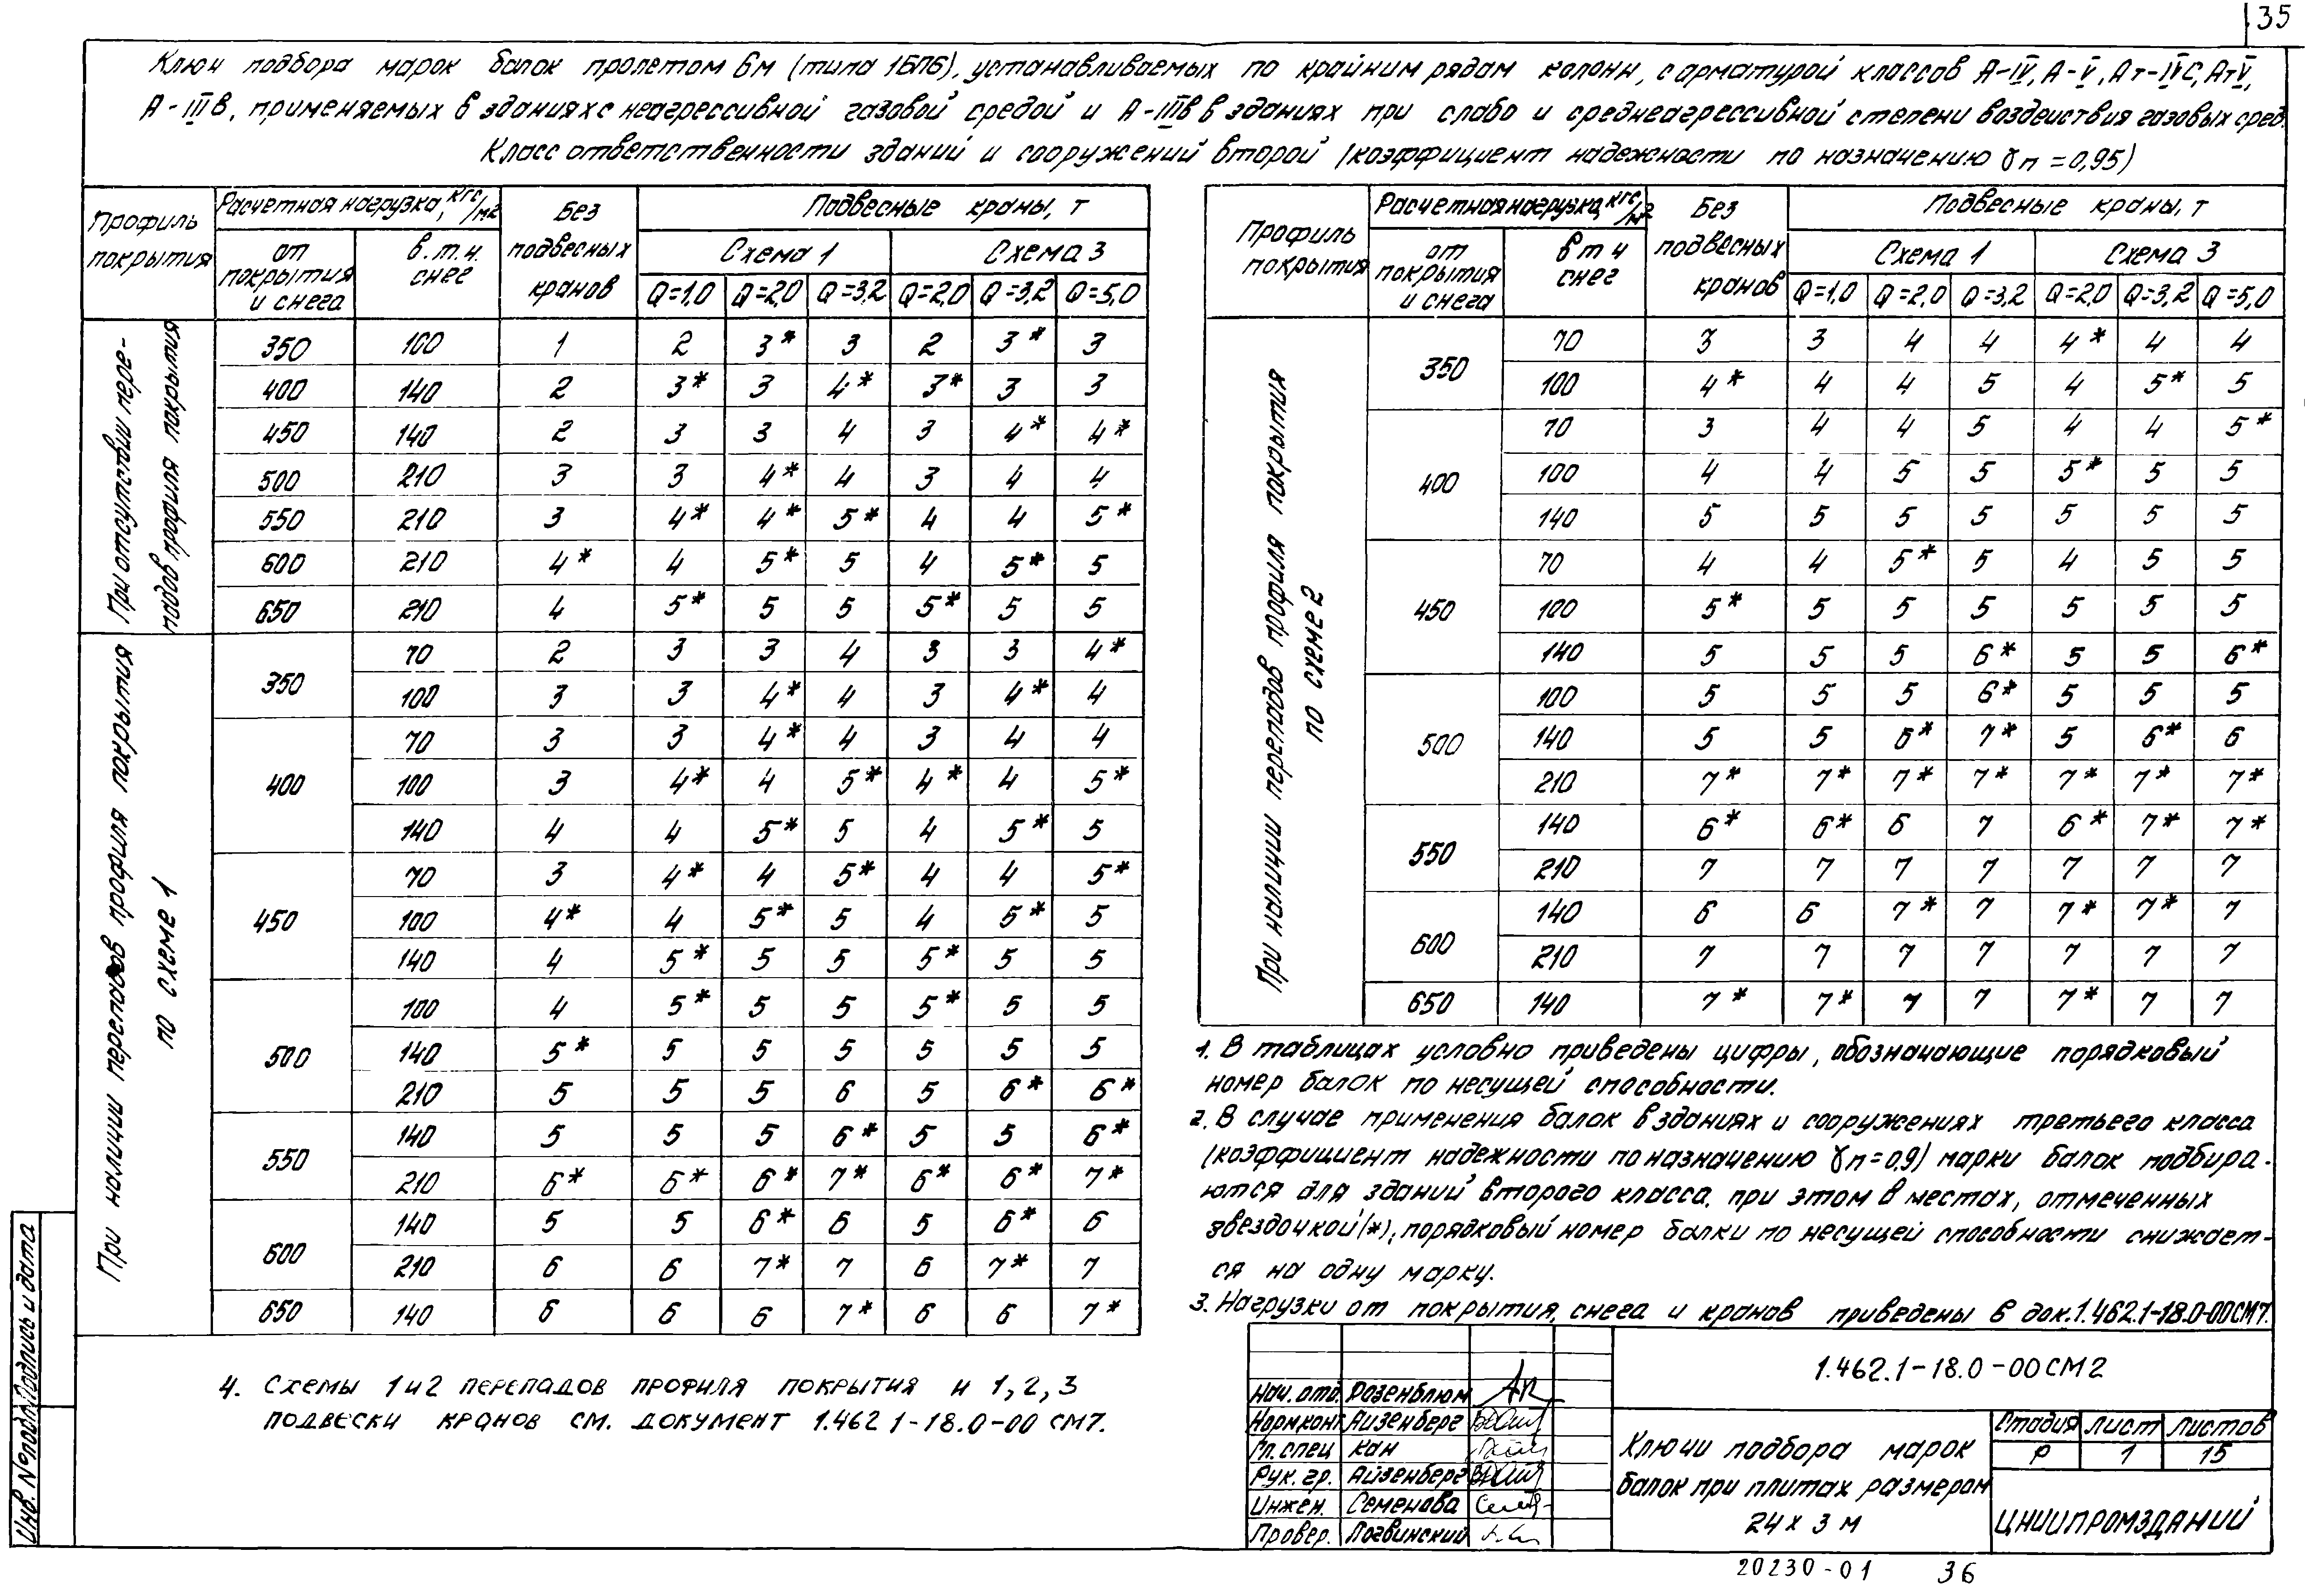 35
Ключ подбора марок балок пролетом 6м (типа 1БП6), устанавливаемых по крайним рядам колонн, с арматурой классов А-IV, А-V, Ат-IVС, АтV,
А-IIIв, применяемых в зданиях с неагрессивной газовой средой и А-IIIв в зданиях при слабо и среднеагрессивной степени воздействия газовых сред.
Класс ответственности зданий и сооружений второй (коэффициент надежности по назначению γn=0,95)
Профиль покрытия | Расчетная нагрузка, кгс/м2 | Без подвесных кранов | Подвесные краны, т
от покрытия и снега | в.т.ч. снег | Схема 1 | Схема 3
Q=1,0 Q=2,0 Q=3,2 Q=2,0 Q=3,2 Q=5,0
При отсутствии перепадов профиля покрытия
350 100 1 2 3* 3 2 3* 3
400 140 2 3* 3 4* 3* 3 3
450 140 2 3 3 4 3 4* 4*
500 210 3 3 4* 4 3 4 4
550 210 3 4* 4* 5* 4 4 5*
600 210 4* 4 5* 5 4 5* 5
650 210 4 5* 5 5 5* 5 5
При наличии перепадов профиля покрытия по схеме 1
350 70 2 3 3 4 3 3 4*
100 3 3 4* 4 3 4* 4
400 70 3 3 4* 4 3 4 4
100 3 4* 4 5* 4* 4 5*
140 4 4 5* 5 4 5* 5
450 70 3 4* 4 5* 4 4 5*
100 4* 4 5* 5 4 5* 5
140 4 5* 5 5 5* 5 5
500 100 4 5* 5 5 5* 5 5
140 5* 5 5 5 5 5 5
210 5 5 5 6 5 6* 6*
550 140 5 5 5 6* 5 5 6*
210 6* 6* 6* 7* 6* 6* 7*
600 140 5 5 6* 6 5 6* 6
210 6 6 7* 7 6 7* 7
650 140 6 6 6 7* 6 6 7*
Профиль покрытия | Расчетная нагрузка, кгс/м2 | Без подвесных кранов | Подвесные краны, т
от покрытия и снега | в т ч снег | Схема 1 | Схема 3
Q=1,0 Q=2,0 Q=3,2 Q=2,0 Q=3,2 Q=5,0
При наличии перепадов профиля покрытия по схеме 2
350 70 3 3 4 4 4* 4 4
100 4* 4 4 5 4 5* 5
400 70 3 4 4 5 4 4 5*
100 4 4 5 5 5* 5 5
140 5 5 5 5 5 5 5
450 70 4 4 5* 5 4 5 5
100 5* 5 5 5 5 5 5
140 5 5 5 6* 5 5 6*
500 100 5 5 5 6* 5 5 5
140 5 5 6* 7* 5 6* 6
210 7* 7* 7* 7* 7* 7* 7*
550 140 6* 6* 6 7 6* 7* 7*
210 7 7 7 7 7 7 7
600 140 6 6 7* 7 7* 7* 7
210 7 7 7 7 7 7 7
650 140 7* 7* 7 7 7* 7 7
1. В таблицах условно приведены цифры, обозначающие порядковый
номер балок по несущей способности.
2. В случае применения балок в зданиях и сооружениях третьего класса
(коэффициент надежности по назначению γn=0,9) марки балок подбира-
ются для зданий второго класса, при этом в местах, отмеченных
звездочкой (*), порядковый номер балки по несущей способности снижает-
ся на одну марку.
3. Нагрузки от покрытия, снега и кранов приведены в док.1.462.1-18.0-00СМ7.
4. Схемы 1 и 2 перепадов профиля покрытия и 1, 2, 3
подвески кранов см. документ 1.462 1-18.0-00 СМ7.
1.462.1-18.0-00СМ2
Нач. отд. Розенблюм
Нормконт Айзенберг
Гл. спец Кан
Рук. гр. Айзенберг
Инжен. Семенова
Провер. Логвинский
Ключи подбора марок
балок при плитах размером
24 х 3 м
Стадия Лист Листов
Р 1 15
ЦНИИПРОМЗДАНИЙ
Инв. № подл. Подпись и дата
20230-01 36